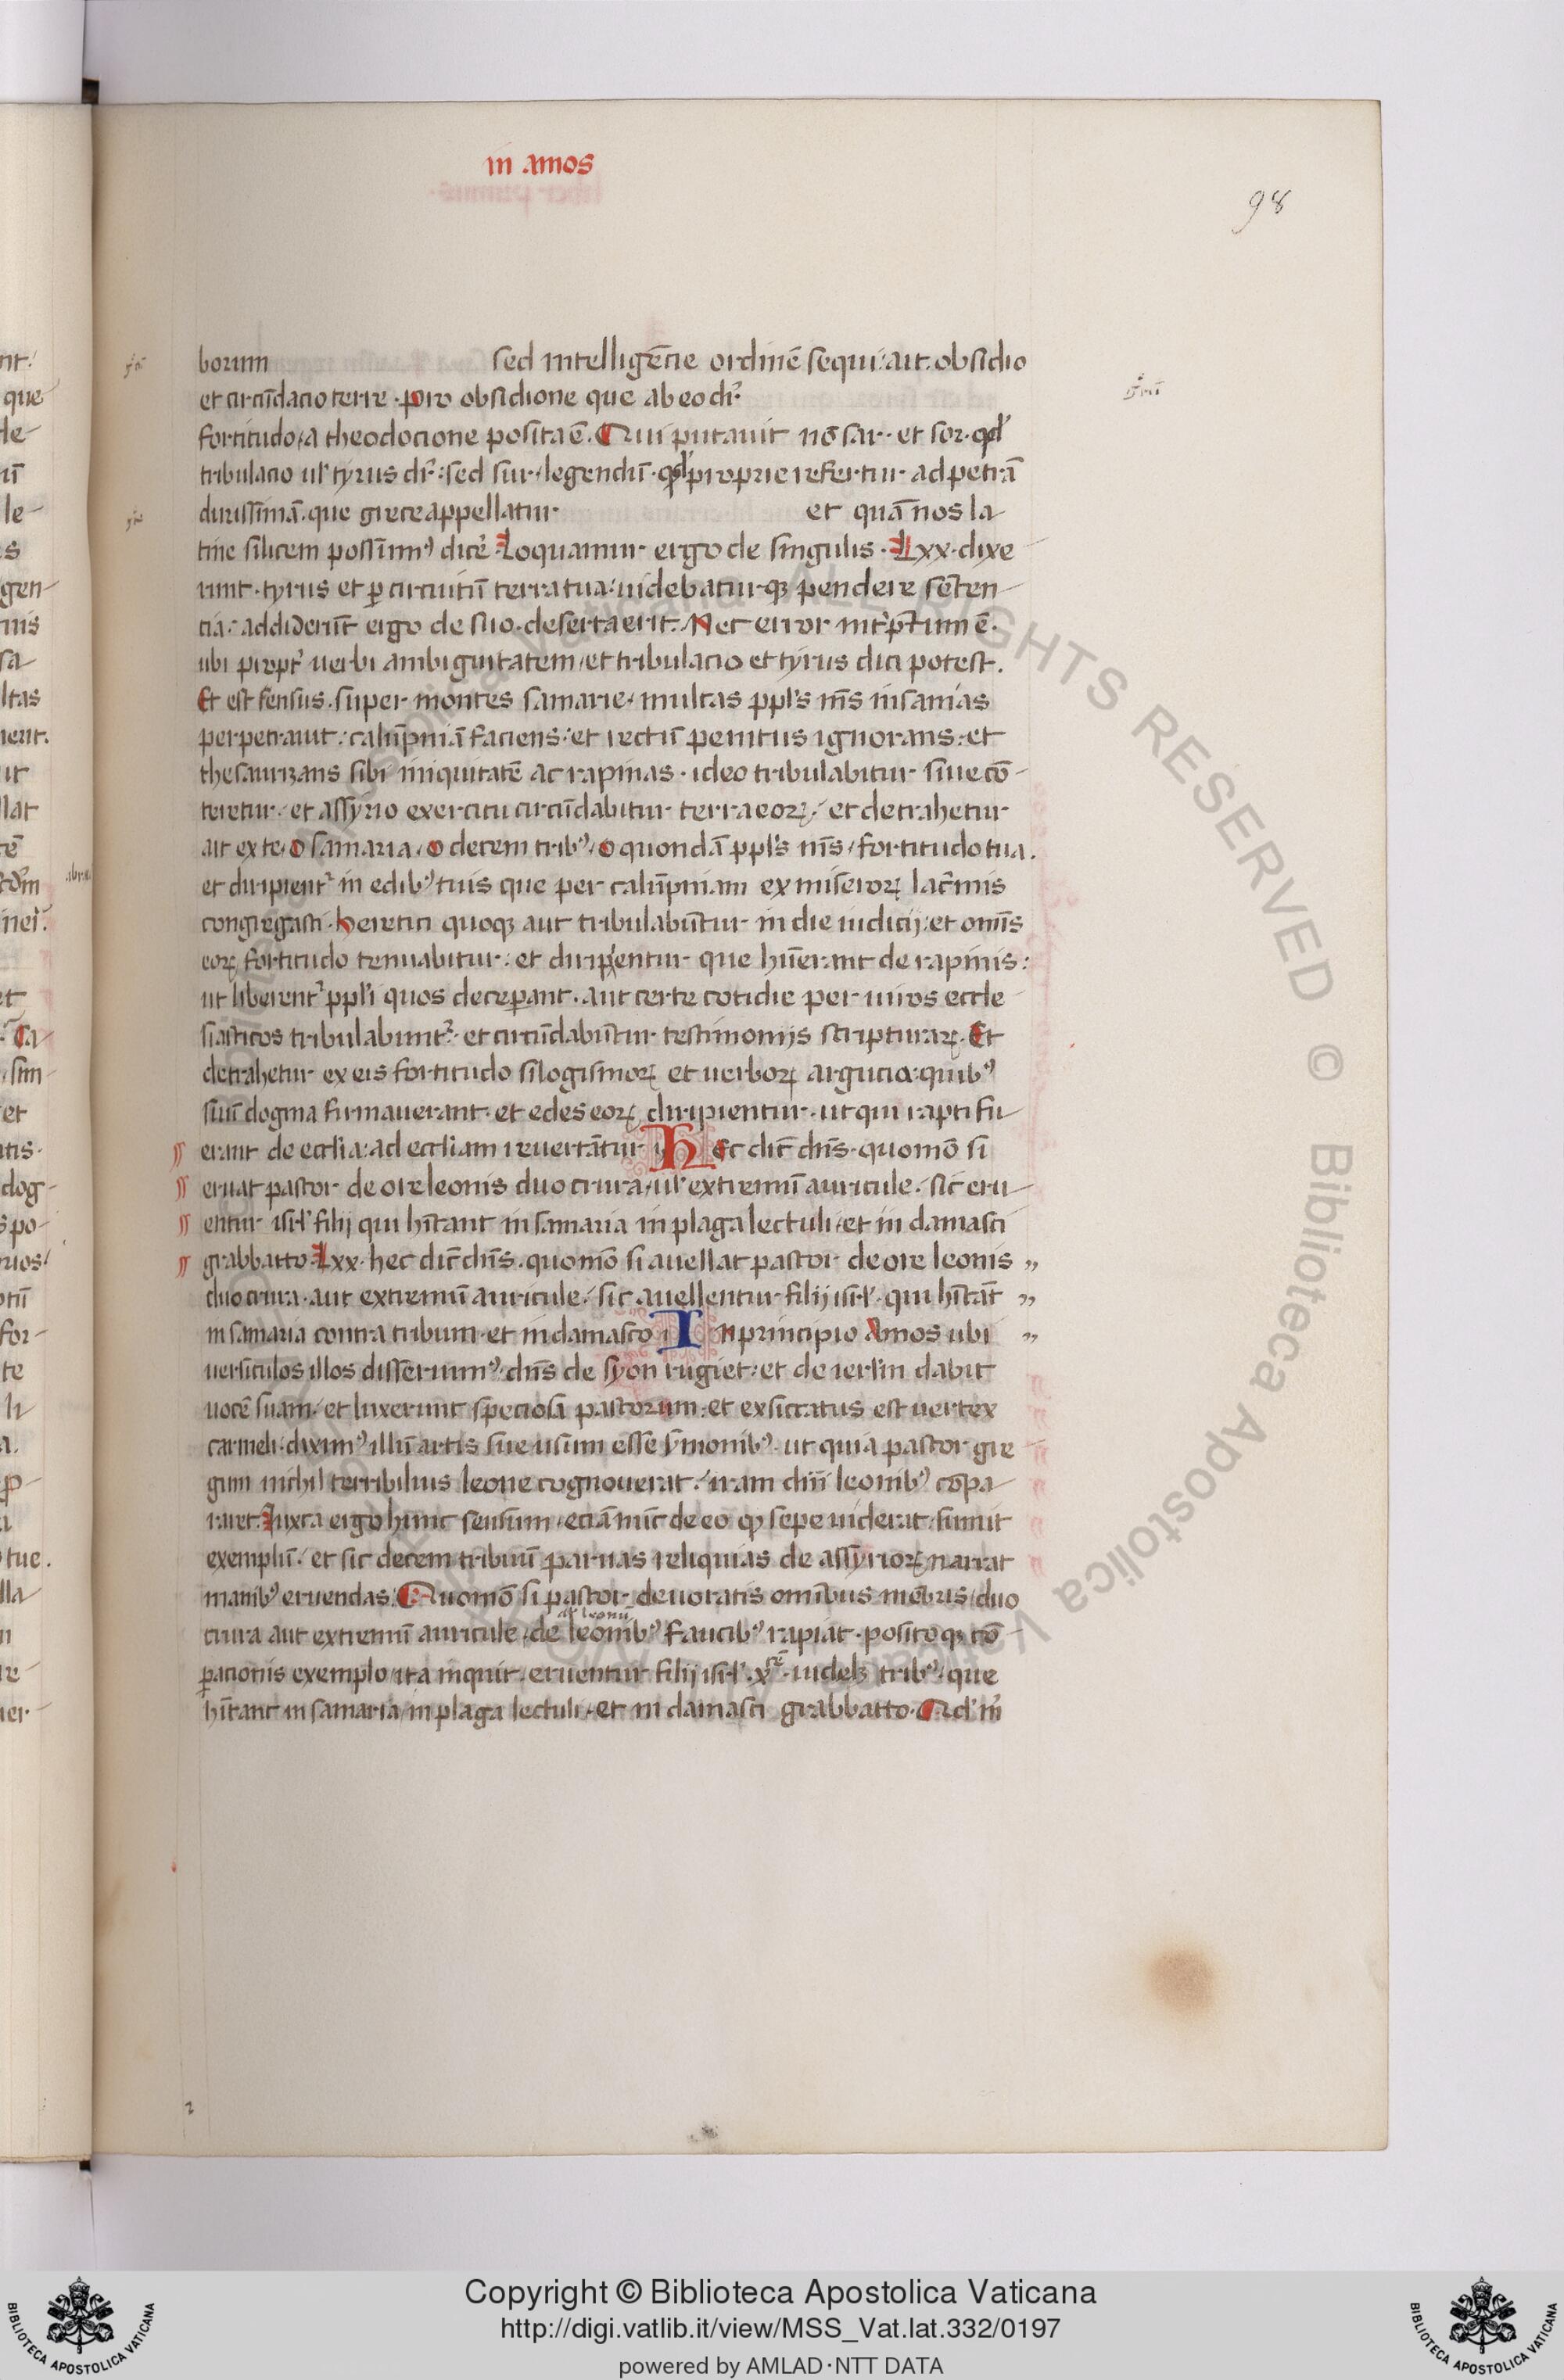 in amos
98
borum sed intelligēcie ordinē sequi: ait. obsidio
et circūdacio terre. pro obsidione que ab eo dr̄
fortitudo, a theodocione posita ē. Qui putauit nō sar. et sor. qd'
tribulacio ul' tyrus dr̄: sed sur, legendū. qd' proprie refertur ad petrā
durissimā. que grece appellatur et quā nos la-
tine silicem possumꝰ dicē. Loquamur ergo de singulis. Lxx. dixe-
runt. tyrus et ꝑ circuitū terra tua: uidebatur qꝫ pendere sēten-
cia: addiderūt ergo de suo. deserta erit. Nec error int̄p̄tum ē.
ubi propt̄ uerbi ambiguitatem, et tribulacio et tyrus dici potest.
Et est sensus. super montes samarie, multas ppl's m̄s insanias
perpetrauit: calūpniā faciens: et rectū penitus ignorans: et
thesaurizans sibi iniquitatē ac rapinas. ideo tribulabitur siue cō-
teretur: et assyrio exercitu circūdabitur terra eoꝝ: et detrahetur
ait ex te, o samaria, o decem tribꝰ, o quondā ppl's m̄s, fortitudo tua.
et diripient̄ in edibꝰ tuis que per calūpniam ex miseroꝝ lac̄mis
congregasti. heretici quoqꝫ aut tribulabūtur in die iudicij: et om̄s
eoꝝ fortitudo tenuabitur: et diripientur que hūerant de rapinis:
ut liberent̄ ppl'i quos deceꝑant. aut certe cotidie per uiros eccle-
siasticos tribulabunt̄. et circūdabūtur testimonijs scripturaꝝ. Et
detrahetur ex eis fortitudo silogismoꝝ et uerboꝝ argucia: quibꝰ
suū dogma firmauerant. et edes eoꝝ diripientur. ut qui rapti fu-
erant de eccl'ia: ad eccl'iam reuertātur. Hec dic̄ dn̄s. quomō si
eruat pastor de ore leonis duo crura, ul' extremū auricule: sic eru-
entur isr̄l' filij qui hītant in samaria in plaga lectuli, et in damasci
grabbatto. Lxx. hec dic̄ dn̄s. quomō si auellat pastor de ore leonis
duo crura. aut extremū auricule: sic auellentur filij isr̄l'. qui hītāt
in samaria contra tribum. et in damasco. In principio Amos ubi
uersiculos illos disserumꝰ: dn̄s de syon rugiet: et de ierl'm dabit
uocē suam: et luxerunt speciosa pastorum: et exsiccatus est uertex
carmeli: diximꝰ illū artis sue usum esse s̄monibꝰ. ut quia pastor gre-
gum nichil terribilius leone cognouerat: iram dn̄i leonibꝰ cōpa-
raret. Iuxta ergo hunc sensum, eciā nūc de eo qꝫ sepe uiderat, sumit
exemplū: et sic decem tribuū paruas reliquias de assyrioꝝ narrat
manibꝰ eruendas. Quomō si pastor deuoratis omībus mēbris, duo
crura aut extremū auricule, de leonibꝰ faucibꝰ rapiat. positoqꝫ cō-
ꝑacionis exemplo, ita inquit. eruentur filij isr̄l'. xᶜᵉ. uidelꝫ tribꝰ, que
hītant in samaria, in plaga lectuli, et in damasci grabbatto.
Copyright © Biblioteca Apostolica Vaticana
http://digi.vatlib.it/view/MSS_Vat.lat.332/0197
powered by AMLAD·NTT DATA